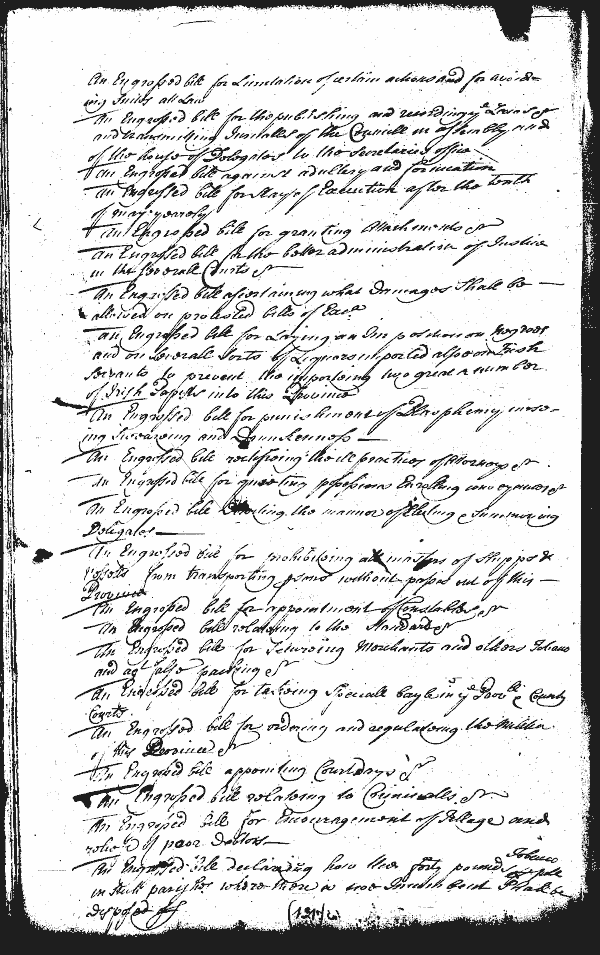 An Engrossed bill for Limitation of certain actions and for avoid=
ing suits at Law
An Engrossed bill for the publishing and recording of ye Laws &
and transmitting Journalls of the Councill in assembly and
of the house of Delegates to the Secretarys office
An Engrossed bill against adultery and fornication
An Engrossed bill for Stay of Execution after the tenth
of may yearely
An Engrossed bill for granting Attachments &c
An Engrossed bill for the better administration of Justice
in the severall Courts &c
An Engrossed bill ascertaining what Damages Shall be —
allowed on protested bills of Exce
An Engrossed bill for Laying an Imposition on Negroes
and on severall Sorts of Liquors imported also on Irish
Servants to prevent the importing too great a number
of Irish Papists into this Province
An Engrossed bill for punishment of Blasphemy curs=
ing Swearing and Drunkenness —
An Engrossed bill rectifieing the ill practices of Attorneys &c
An Engrossed bill for quieting possessions Enrolling conveyances &c
An Engrossed bill directing the manner of Electing & Summoning
Delegates —
An Engrossed bill for prohibiting all masters of Shipps &
vessells from transporting persons without passes out of this —
Province
An Engrossed bill for appointment of Constables &c
An Engrossed bill relateing to the Standard &c
An Engrossed bill for Secureing Merchants and others Tobacco
and agt false packing &c
An Engrossed bill for takeing Speciall bayle in ye Provll & County
Courts
An Engrossed bill for ordering and regulateing the Militia
of this Province &c
An Engrossed bill appointing Court days &c
An Engrossed bill relateing to Criminalls &c
An Engrossed bill for Encouragement of Tillage and
reliefe of poor Debtors —
An Engrossed bill declaring how the forty pounds Tobacco
per poll
in such parishes where there is noe Incumbent Shall be
disposed of